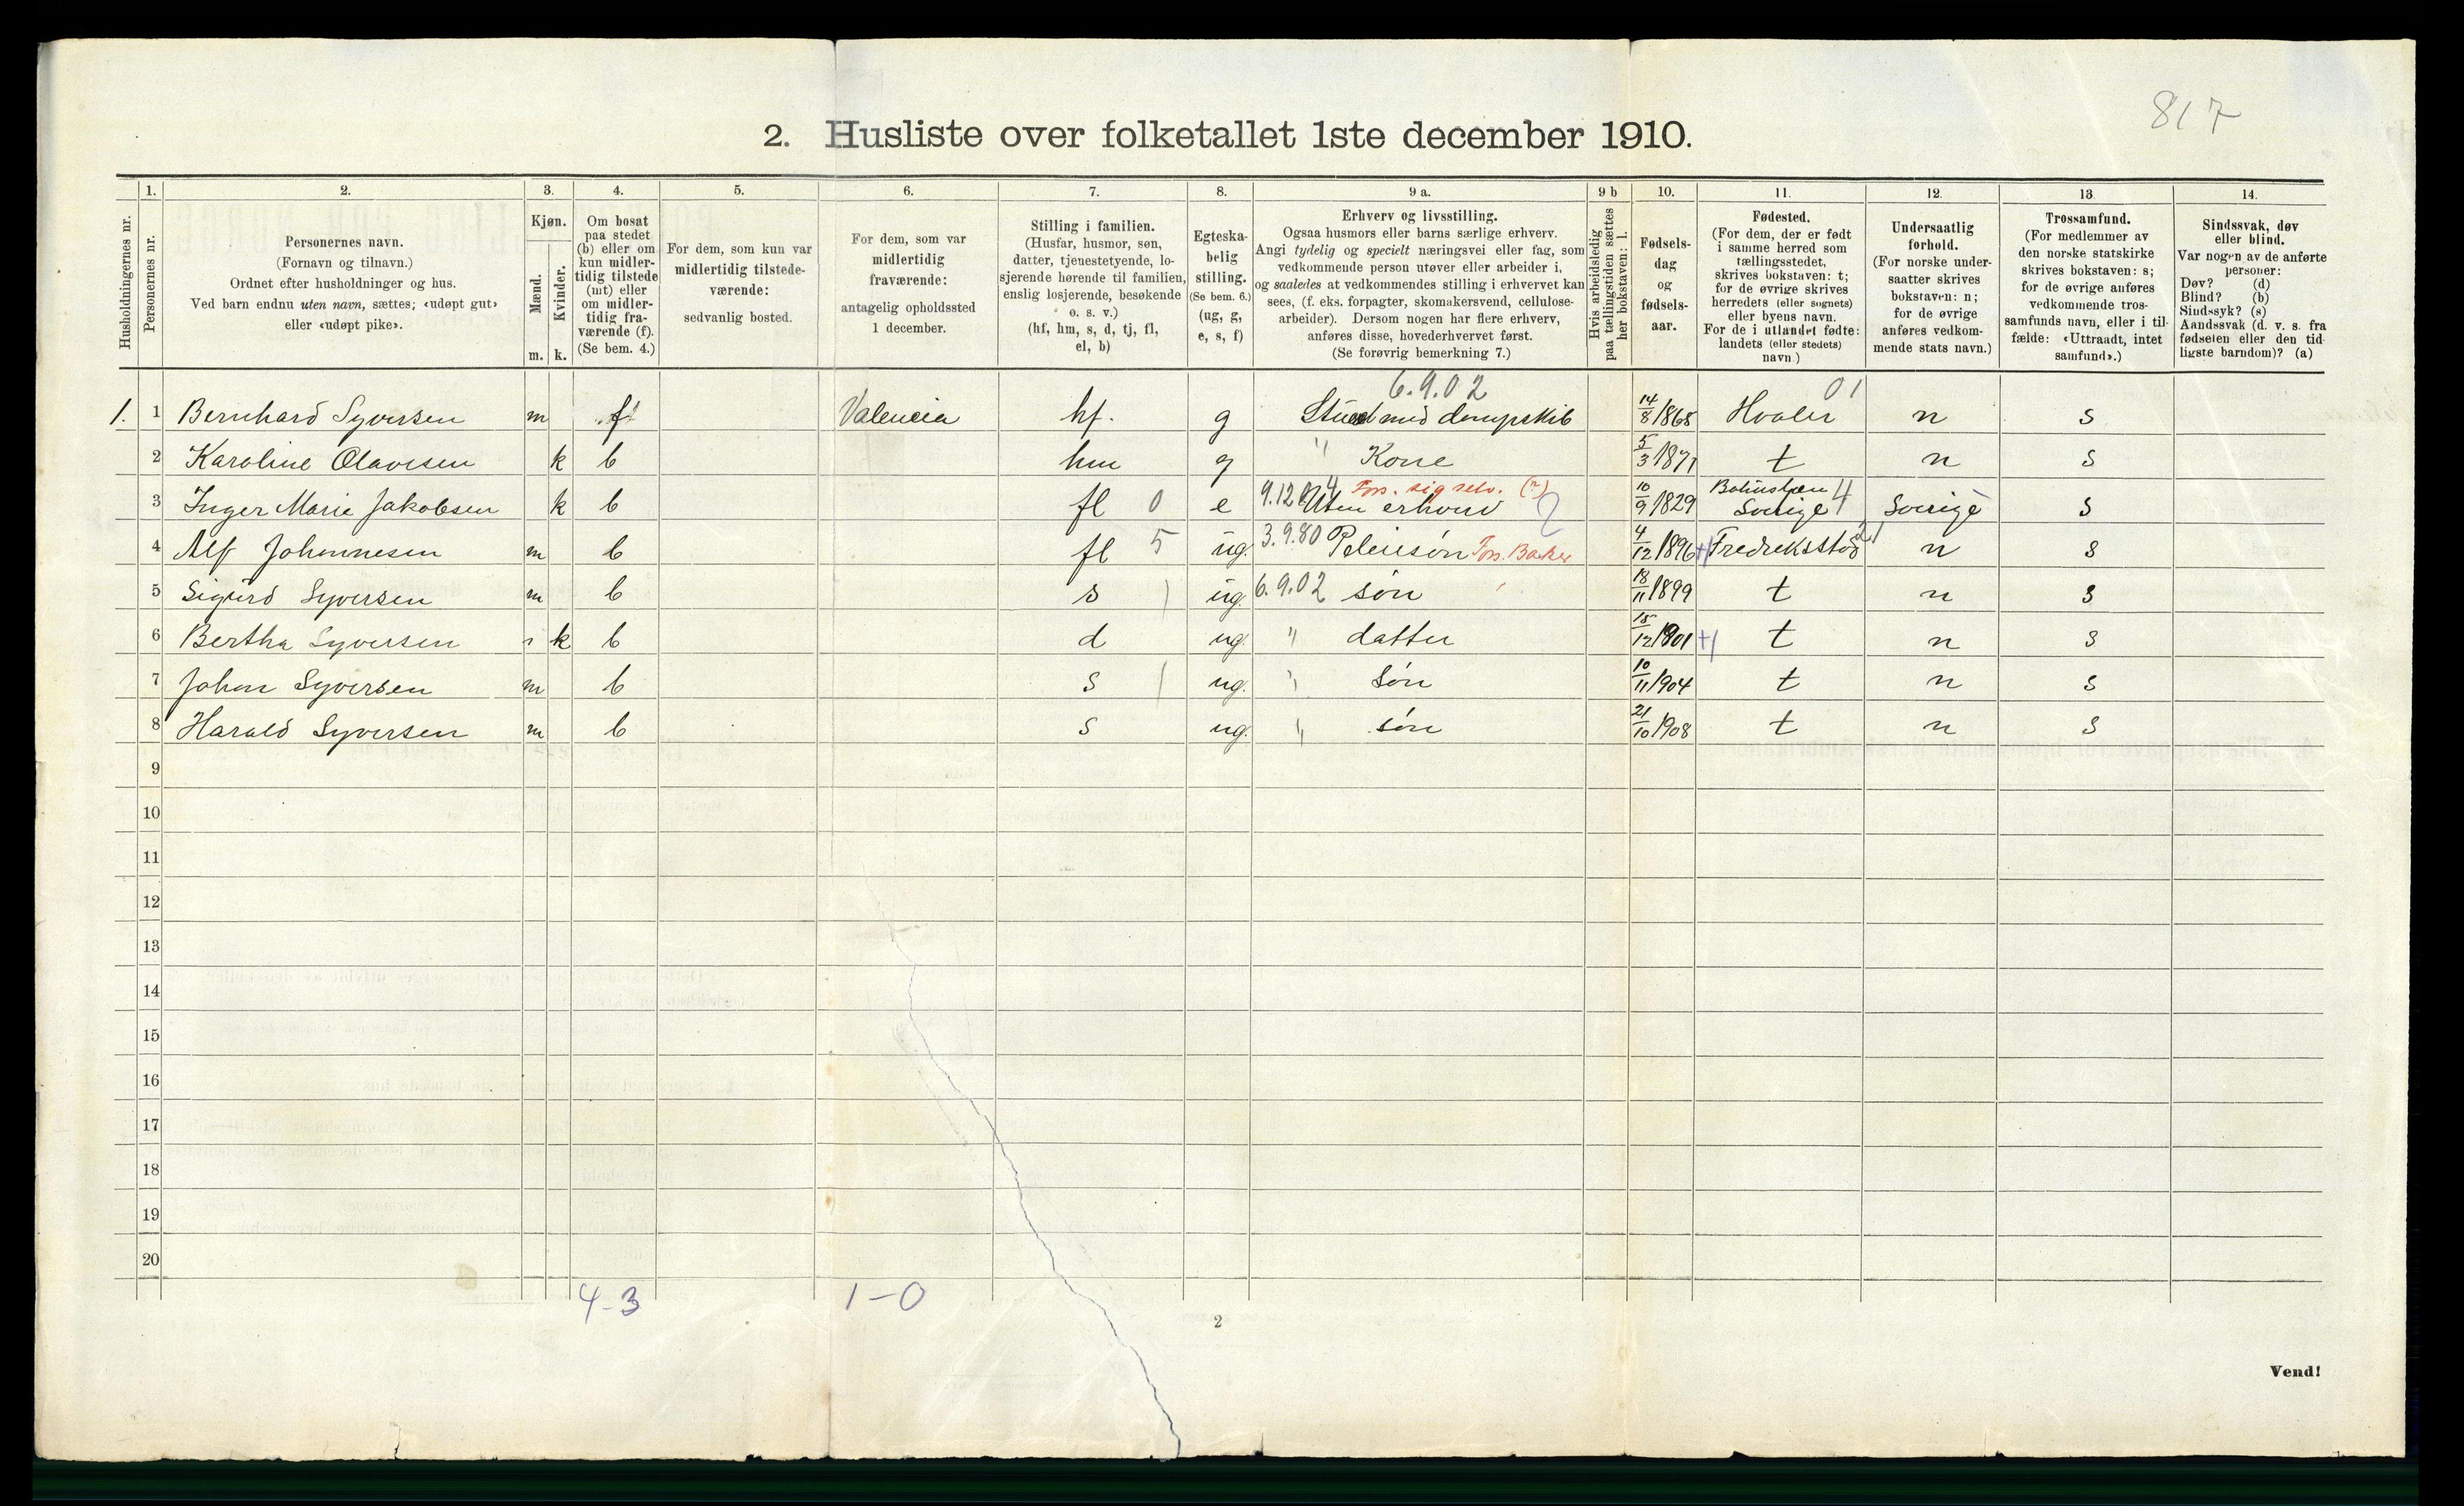 817
2. Husliste over folketallet 1ste december 1910.
Husholdningernes nr.
1.
Personernes nr.
2.
Personernes navn.
(Fornavn og tilnavn.)
Ordnet efter husholdninger og hus.
Ved barn endnu uten navn, sættes; «udøpt gut»
eller «udøpt pike».
3.
Kjøn.
Mænd.
Kvinder.
m. k.
4.
Om bosat
paa stedet
(b) eller om
kun midler-
tidig tilstede
(mt) eller
om midler-
tidig fra-
værende (f).
(Se bem. 4.)
5.
For dem, som kun var
midlertidig tilstede-
værende:
sedvanlig bosted.
6.
For dem, som var
midlertidig
fraværende:
antagelig opholdssted
1 december.
7.
Stilling i familien.
(Husfar, husmor, søn,
datter, tjenestetyende, lo-
sjerende hørende til familien,
enslig losjerende, besøkende
o. s. v.)
(hf, hm, s, d, tj, fl,
el, b)
8.
Egteska-
belig
stilling.
(Se bem. 6.)
(ug, g,
e, s, f)
9 a.
Erhverv og livsstilling.
Ogsaa husmors eller barns særlige erhverv.
Angi tydelig og specielt næringsvei eller fag, som
vedkommende person utøver eller arbeider i,
og saaledes at vedkommendes stilling i erhvervet kan
sees, (f. eks. forpagter, skomakersvend, cellulose-
arbeider). Dersom nogen har flere erhverv,
anføres disse, hovederhvervet først.
(Se forøvrig bemerkning 7.)
9 b
Hvis arbeidsledig
paa tællingstiden sættes
her bokstaven: l.
10.
Fødsels-
dag
og
fødsels-
aar.
11.
Fødested.
(For dem, der er født
i samme herred som
tællingsstedet,
skrives bokstaven: t;
for de øvrige skrives
herredets (eller sognets)
eller byens navn.
For de i utlandet fødte:
landets (eller stedets)
navn.)
12.
Undersaatlig
forhold.
(For norske under-
saatter skrives
bokstaven: n;
for de øvrige
anføres vedkom-
mende stats navn.)
13.
Trossamfund.
(For medlemmer av
den norske statskirke
skrives bokstaven: s;
for de øvrige anføres
vedkommende tros-
samfunds navn, eller i til-
fælde: «Uttraadt, intet
samfund».)
14.
Sindssvak, døv
eller blind.
Var nogen av de anførte
personer:
Døv? (d)
Blind? (b)
Sindssyk? (s)
Aandssvak (d. v. s. fra
fødselen eller den tid-
ligste barndom)? (a)
6.9.02 01
1. 1 Bernhard Syversen m f Valencia hf. g med dampskib 14/8 1868 Hvaler n s
2 Karoline Olavesen k b hm g " Kone 5/3 1871 t n s
Fors. sig selv. (?) 4
3 Inger Marie Jakobsen k b fl 0 e 9.12 Uten erhverv 2 10/9 1829 Sverige Sverige s
4 Alf Johannesen m b fl 5 ug. 3.9.80 Pleiesøn Fors. Baker 4/12 1896 Fredriksstad 21 n s
5 Sigurd Syversen m b s ug. 6.9.02 søn 18/11 1899 t n s
6 Bertha Syversen k b d ug. " datter 15/12 1901 t n s
7 Johan Syversen m b s ug. " Søn 10/11 1904 t n s
8 Harald Syversen m b s ug. " søn 21/10 1908 t n s
9
10
11
12
13
14
15
16
17
18
19
20
4-3 1-0
2
Vend!